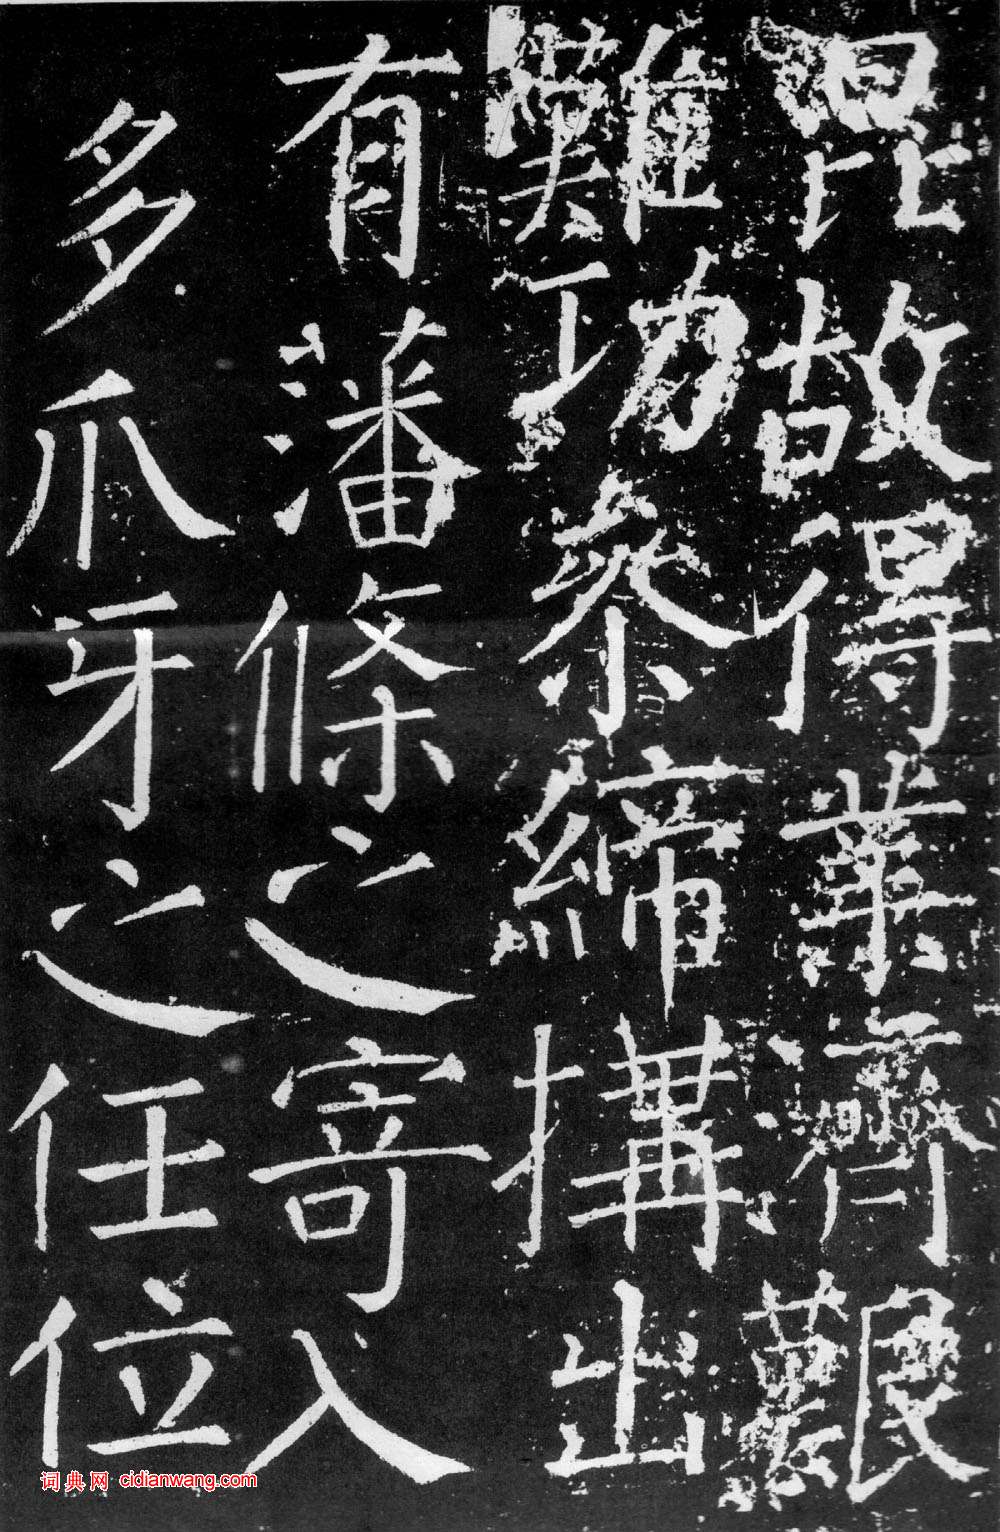 昆故得業濟艱
難功參締搆出
有藩條之寄入
多爪牙之任位
词典网 cidianwang.com